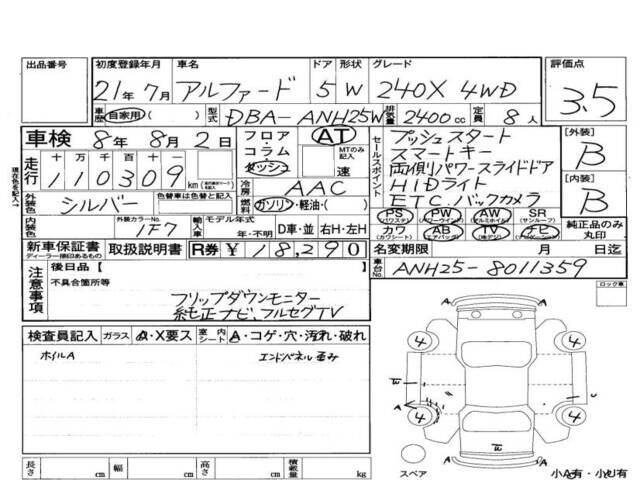 出品番号
初度登録年月 21年7月
車名 アルファード
ドア 5
形状 W
グレード 240X 4WD
評価点 3.5
車歴 自家用( )
型式 DBA-ANH25W
排気量 2400cc
定員 8人
車検 8年8月2日
フロア・コラム・ダッシュ
AT
MTのみ記入
速
セールスポイント
プッシュスタート
スマートキー
両側パワースライドドア
HIDライト
ETC.バックカメラ
[外装] B
[内装] B
走行 十 万 千 百 十 一
110309 km
冷房 AAC
外装色 シルバー
色替車は色替と記入
燃料 ガソリン・軽油・( )
PS PW AW SR
(パワステ) (パワーウインド) (サンルーフ)
カワ AB TV ナビ
(カワシート) (エアバッグ)
純正品のみ丸印
内装色
外装カラーNo. 1F7
輸入車
モデル年式 年・不明
D車・並
右H・左H
新車保証書
ディーラー捺印あるもの
取扱説明書
R券 ¥18,290
名変期限 月 日迄
車台No. ANH25-8011359
現在色を記入
注意事項
後日品【 】
不具合箇所等
フリップダウンモニター
純正ナビ,フルセグTV
ロック車
検査員記入
ガラス A・X要ス
室内シート A・コゲ・穴・汚れ・破れ
ホイルA
エンドパネル歪み
4 4
4 4
A
A
スペア
小A有・小U有
長さ cm
幅 cm
高さ cm
積載量 kg